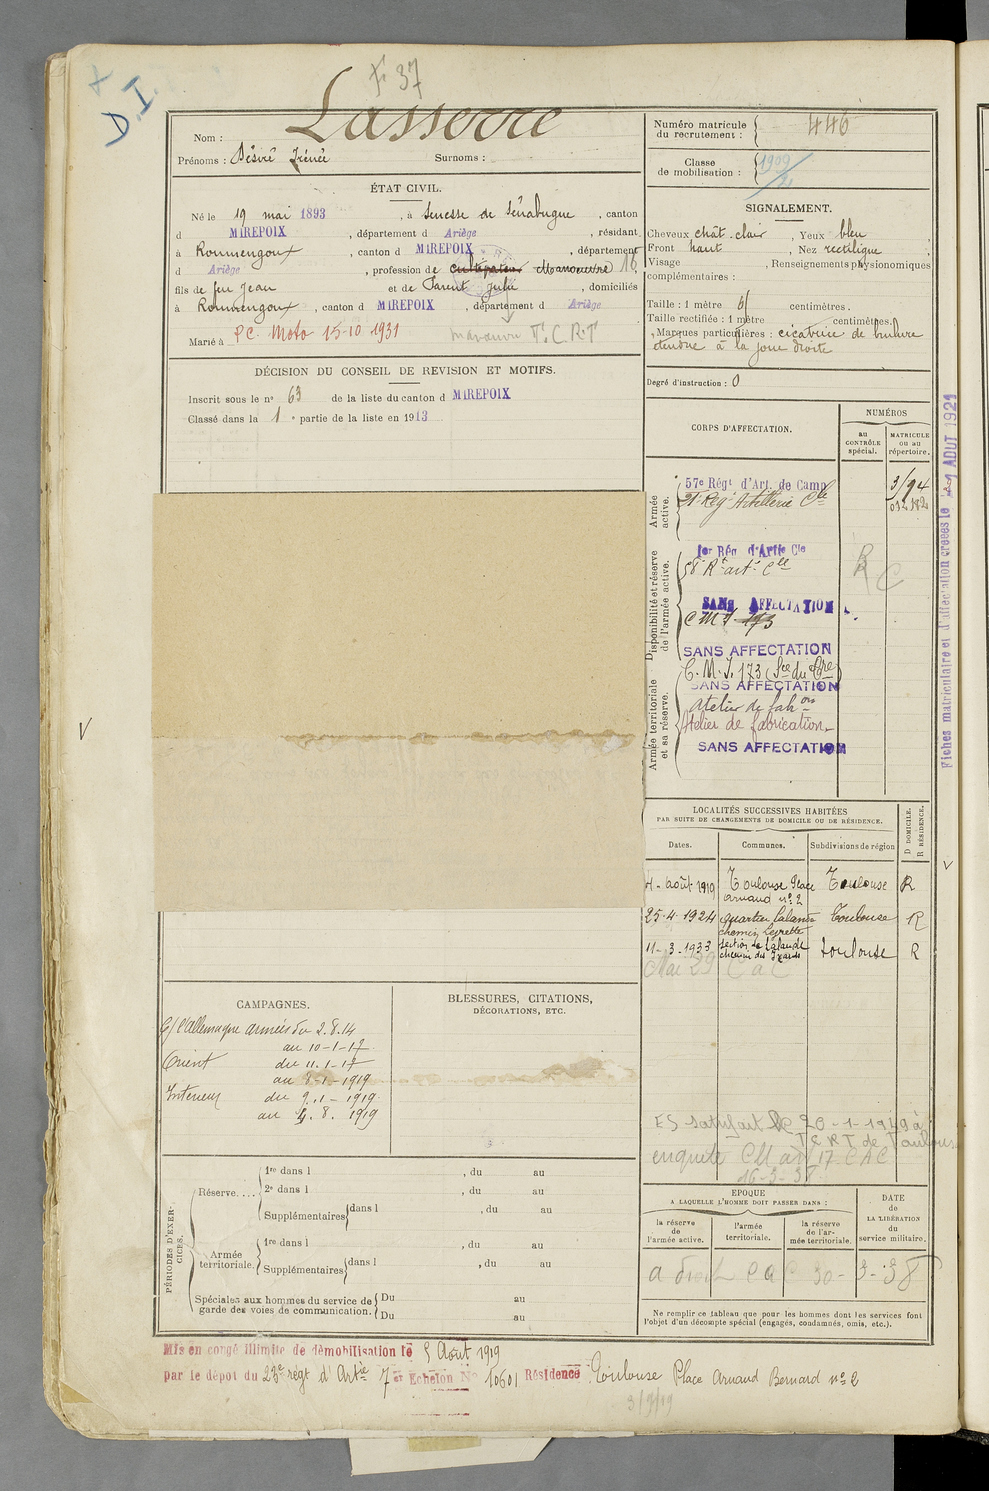 D.I.
F. 37
Nom : Lasserre
Prénoms : Désiré Irénée Surnoms :
ÉTAT CIVIL.
Né le 19 mai 1893, à Senesse de Senabugue, canton
d MIREPOIX, département d Ariège, résidant
à Roumengoux, canton d MIREPOIX, département
d Ariège, profession de cultivateur Manoeuvre 16,
fils de feu Jean et de Parent Julie, domiciliés
à Roumengoux, canton d MIREPOIX, département d Ariège
Marié à P.C. Moto 15-10 1931 T.C.R.T
DÉCISION DU CONSEIL DE REVISION ET MOTIFS.
Inscrit sous le n° 63 de la liste du canton d MIREPOIX
Classé dans la 1e partie de la liste en 1913
Numéro matricule du recrutement : 446
Classe de mobilisation : 1909
SIGNALEMENT.
Cheveux chât. clair, Yeux bleu
Front haut, Nez rectiligne
Visage , Renseignements physionomiques
complémentaires :
Taille : 1 mètre 61 centimètres.
Taille rectifiée : 1 mètre centimètres.
Marques particulières : cicatrice de brulure
étendue à la joue droite
Degré d'instruction : 0
CORPS D'AFFECTATION.
NUMÉROS
au CONTRÔLE spécial.
MATRICULE ou au répertoire.
Armée active.
57e Régt d'Art. de Camp
Regt Artillerie Cle
Disponibilité et réserve de l'armée active.
1er Rég d'Artie Cle
58 Rt art. Clle
SANS AFFECTATION
C M I 173
SANS AFFECTATION
Armée territoriale et sa réserve.
C.M.I. 173 (Sce du Gre)
SANS AFFECTATION
atelier de fabon
Atelier de fabrication
SANS AFFECTATION
R C
Fiches matriculaire et d'affectation créées le 21 AOUT 1921
LOCALITÉS SUCCESSIVES HABITÉES
PAR SUITE DE CHANGEMENTS DE DOMICILE OU DE RÉSIDENCE.
D DOMICILE. R RÉSIDENCE.
Dates. Communes. Subdivisions de région
4 - août 1919 Toulouse Place Arnaud n° 2 Toulouse R
25-4-1924 quartier Lalande chemin Leyrette Toulouse R
11-3-1933 section de Lalande chemin des Izards Toulouse R
Mai 29 C a C
ES satisfait le 20-1-1949 à
T C R T de Toulouse
enquete CM à 17 CAC
16-3-38
CAMPAGNES.
C/ l'Allemagne armées du 2.8.14
au 10-1-17
Orient du 11.1-17
au 8-1-1919
Intérieur du 9.1-1919
au 4.8.1919
BLESSURES, CITATIONS,
DÉCORATIONS, ETC.
PÉRIODES D'EXERCICES.
Réserve....
1re dans l , du au
2e dans l , du au
Supplémentaires dans l , du au
Armée territoriale.
1re dans l , du au
Supplémentaires dans l , du au
Spéciales aux hommes du service de garde des voies de communication.
Du au
Du au
EPOQUE
A LAQUELLE L'HOMME DOIT PASSER DANS :
la réserve de l'armée active.
l'armée territoriale.
la réserve de l'armée territoriale.
DATE de LA LIBÉRATION du service militaire.
a droit C a C 30-3-38
Ne remplir ce tableau que pour les hommes dont les services font
l'objet d'un décompte spécial (engagés, condamnés, omis, etc.).
Mis en congé illimité de démobilisation le 5 Août 1919
par le dépôt du 23e régt d'Artie 7 et Echelon N° 10601 Résidence Toulouse Place Arnaud Bernard n° 2
3/9/19